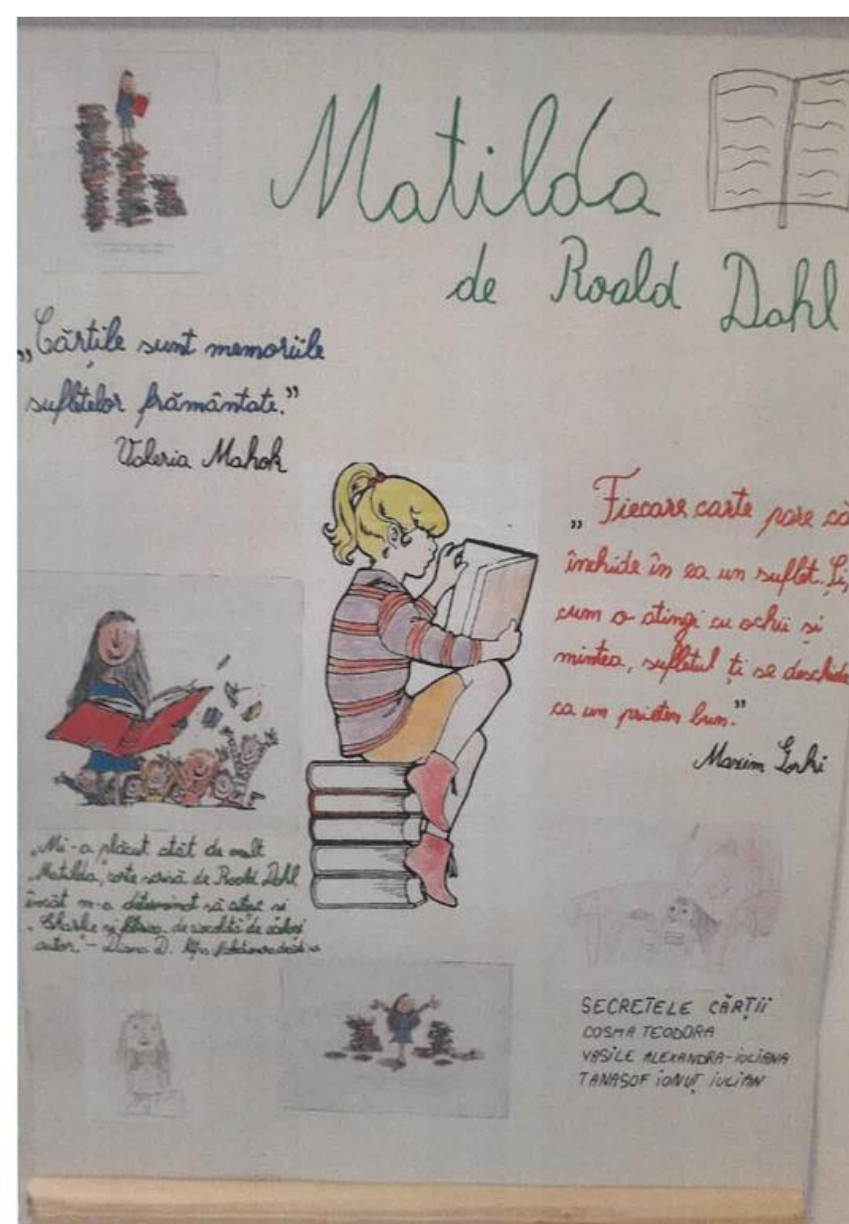 Matilda
de Roald Dahl
„Cărțile sunt memoriile
sufletelor frământate.”
Valeria Mahok
„Fiecare carte pare că
închide în ea un suflet. Și,
cum o atingi cu ochii și
mintea, sufletul ți se deschide
ca un prieten bun.”
Maxim Gorki
„Mi-a plăcut atât de mult
„Matilda”, carte scrisă de Roald Dahl
încât m-a determinat să citesc și
„Charlie și fabrica de ciocolată” de același
autor.” - Diana D.
SECRETELE CĂRȚII
COSMA TEODORA
VASILE ALEXANDRA-IULIANA
TANASOF IONUȚ IULIAN